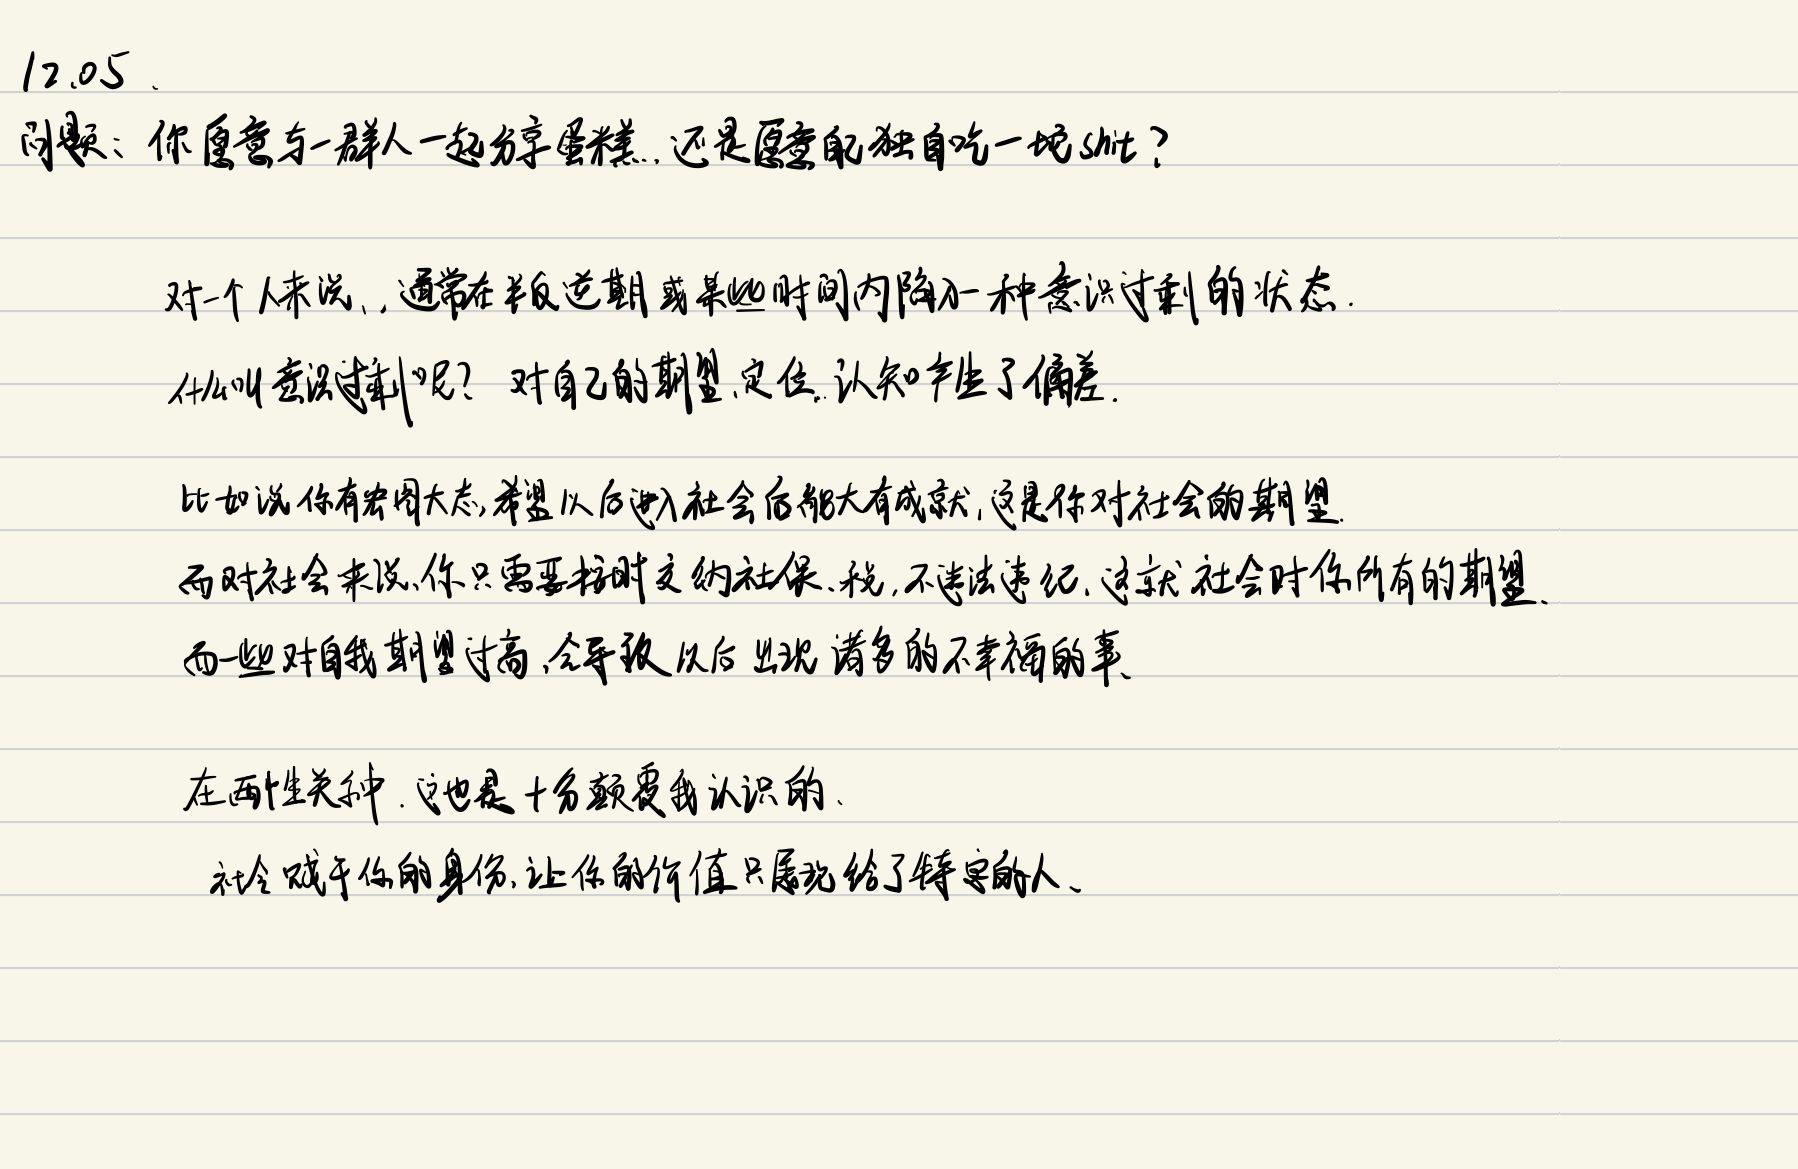 12.05.
问题：你愿意与一群人一起分享蛋糕，还是愿意自己独自吃一坨shit？
对一个人来说，通常在半反逆期或某些时间内陷入一种意识过剩的状态.
什么叫意识过剩呢？对自己的期望、定位、认知产生了偏差.
比如说你有宏图大志，希望以后进入社会后能大有成就，这是你对社会的期望.
而对社会来说，你只需要按时交纳社保、税，不违法违纪，这就社会对你所有的期望、
而一些对自我期望过高，会导致以后出现诸多的不幸福的事、
在两性关系中，这也是十分颠覆我认识的、
社会赋予你的身份，让你的价值只展现给了特定的人、